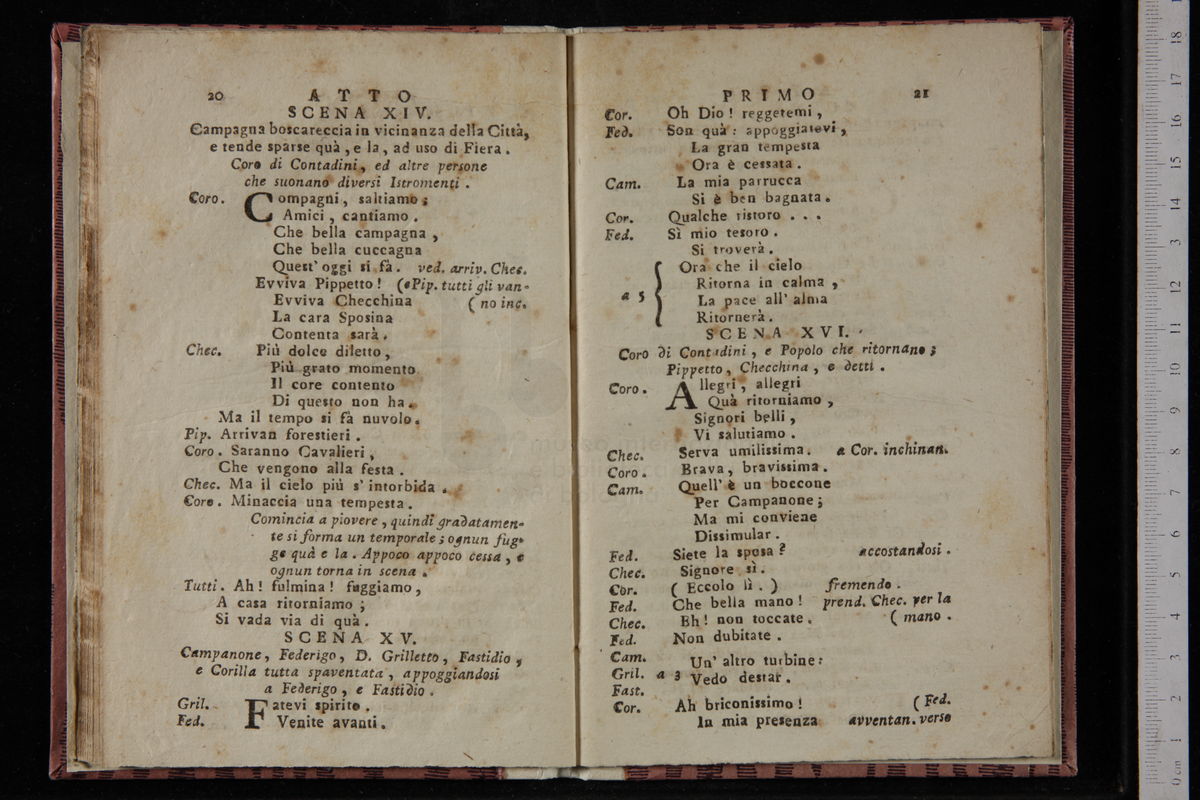 20 ATTO
SCENA XIV.
Campagna boscareccia in vicinanza della Città,
e tende sparse quà, e la, ad uso di Fiera.
Coro di Contadini, ed altre persone
che suonano diversi Istromenti.
Coro. Compagni, saltiamo;
Amici, cantiamo.
Che bella campagna,
Che bella cuccagna
Quest' oggi si fà. ved. arriv. Chec.
Evviva Pippetto! (e Pip. tutti gli van-
Evviva Checchina (no inc.
La cara Sposina
Contenta sarà.
Chec. Più dolce diletto,
Più grato momento
Il core contento
Di questo non ha.
Ma il tempo si fà nuvolo.
Pip. Arrivan forestieri.
Coro. Saranno Cavalieri,
Che vengono alla festa.
Chec. Ma il cielo più s' intorbida.
Coro. Minaccia una tempesta.
Comincia a piovere, quindi gradatamen-
te si forma un temporale; ognun fug-
ge quà e la. Appoco appoco cessa, e
ognun torna in scena.
Tutti. Ah! fulmina! fuggiamo,
A casa ritorniamo;
Si vada via di quà.
SCENA XV.
Campanone, Federigo, D. Grilletto, Fastidio,
e Corilla tutta spaventata, appoggiandosi
a Federigo, e Fastidio.
Gril. Fatevi spirito.
Fed. Venite avanti.
PRIMO 21
Cor. Oh Dio! reggetemi,
Fed. Son quà: appoggiatevi,
La gran tempesta
Ora è cessata.
Cam. La mia parrucca
Si è ben bagnata.
Cor. Qualche ristoro . . .
Fed. Sì mio tesoro.
Si troverà.
Ora che il cielo
Ritorna in calma,
a 5 La pace all' alma
Ritornerà.
SCENA XVI.
Coro di Contadini, e Popolo che ritornano;
Pippetto, Checchina, e detti.
Coro. Allegri, allegri
Quà ritorniamo,
Signori belli,
Vi salutiamo.
Chec. Serva umilissima. a Cor. inchinan.
Coro. Brava, bravissima.
Cam. Quell' è un boccone
Per Campanone;
Ma mi conviene
Dissimular.
Fed. Siete la sposa? accostandosi.
Chec. Signore sì.
Cor. (Eccolo lì.) fremendo.
Fed. Che bella mano! prend. Chec. per la
Chec. Eh! non toccate. (mano.
Fed. Non dubitate.
Cam.
Un' altro turbine:
Gril. a 3 Vedo destar.
Fast.
Cor. Ah briconissimo! (Fed.
In mia presenza avventan. verso